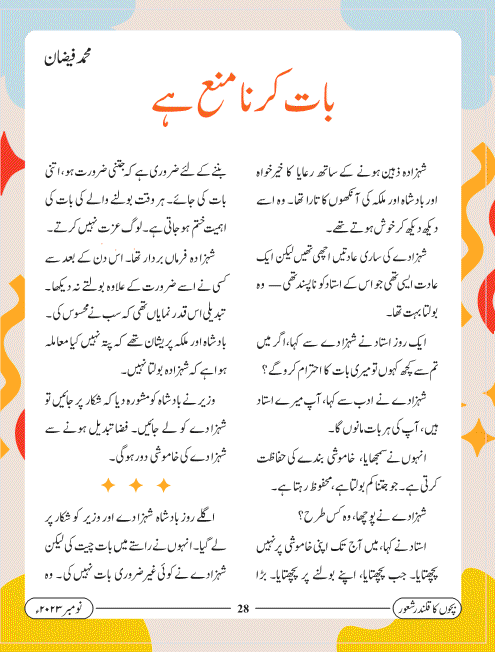 محمد فیضان
بات کرنا منع ہے
شہزادہ ذہین ہونے کے ساتھ رعایا کا خیرخواہ
اور بادشاہ اور ملکہ کی آنکھوں کا تارا تھا۔ وہ اسے
دیکھ دیکھ کر خوش ہوتے تھے۔
شہزادے کی ساری عادتیں اچھی تھیں لیکن ایک
عادت ایسی تھی جو اس کے استاد کو ناپسند تھی — وہ
بولتا بہت تھا۔
ایک روز استاد نے شہزادے سے کہا، اگر میں
تم سے کچھ کہوں تو میری بات کا احترام کرو گے؟
شہزادے نے ادب سے کہا، آپ میرے استاد
ہیں، آپ کی ہر بات مانوں گا۔
انہوں نے سمجھایا، خاموشی بندے کی حفاظت
کرتی ہے۔ جو جتنا کم بولتا ہے، محفوظ رہتا ہے۔
شہزادے نے پوچھا، وہ کس طرح؟
استاد نے کہا، میں آج تک اپنی خاموشی پر نہیں
پچھتایا۔ جب پچھتایا، اپنے بولنے پر پچھتایا۔ بڑا
بننے کے لئے ضروری ہے کہ جتنی ضرورت ہو، اتنی
بات کی جائے۔ ہر وقت بولنے والے کی بات کی
اہمیت ختم ہو جاتی ہے۔ لوگ عزت نہیں کرتے۔
شہزادہ فرماں بردار تھا۔ اس دن کے بعد سے
کسی نے اسے ضرورت کے علاوہ بولتے نہ دیکھا۔
تبدیلی اس قدر نمایاں تھی کہ سب نے محسوس کی۔
بادشاہ اور ملکہ پریشان تھے کہ پتہ نہیں کیا معاملہ
ہوا ہے کہ شہزادہ بولتا نہیں۔
وزیر نے بادشاہ کو مشورہ دیا کہ شکار پر جائیں تو
شہزادے کو لے جائیں۔ فضا تبدیل ہونے سے
شہزادے کی خاموشی دور ہو گی۔
اگلے روز بادشاہ شہزادے اور وزیر کو شکار پر
لے گیا۔ انہوں نے راستے میں بات چیت کی لیکن
شہزادے نے کوئی غیر ضروری بات نہیں کی۔ وہ
بچوں کا قلندر شعور
28
نومبر ۲۰۲۳ء